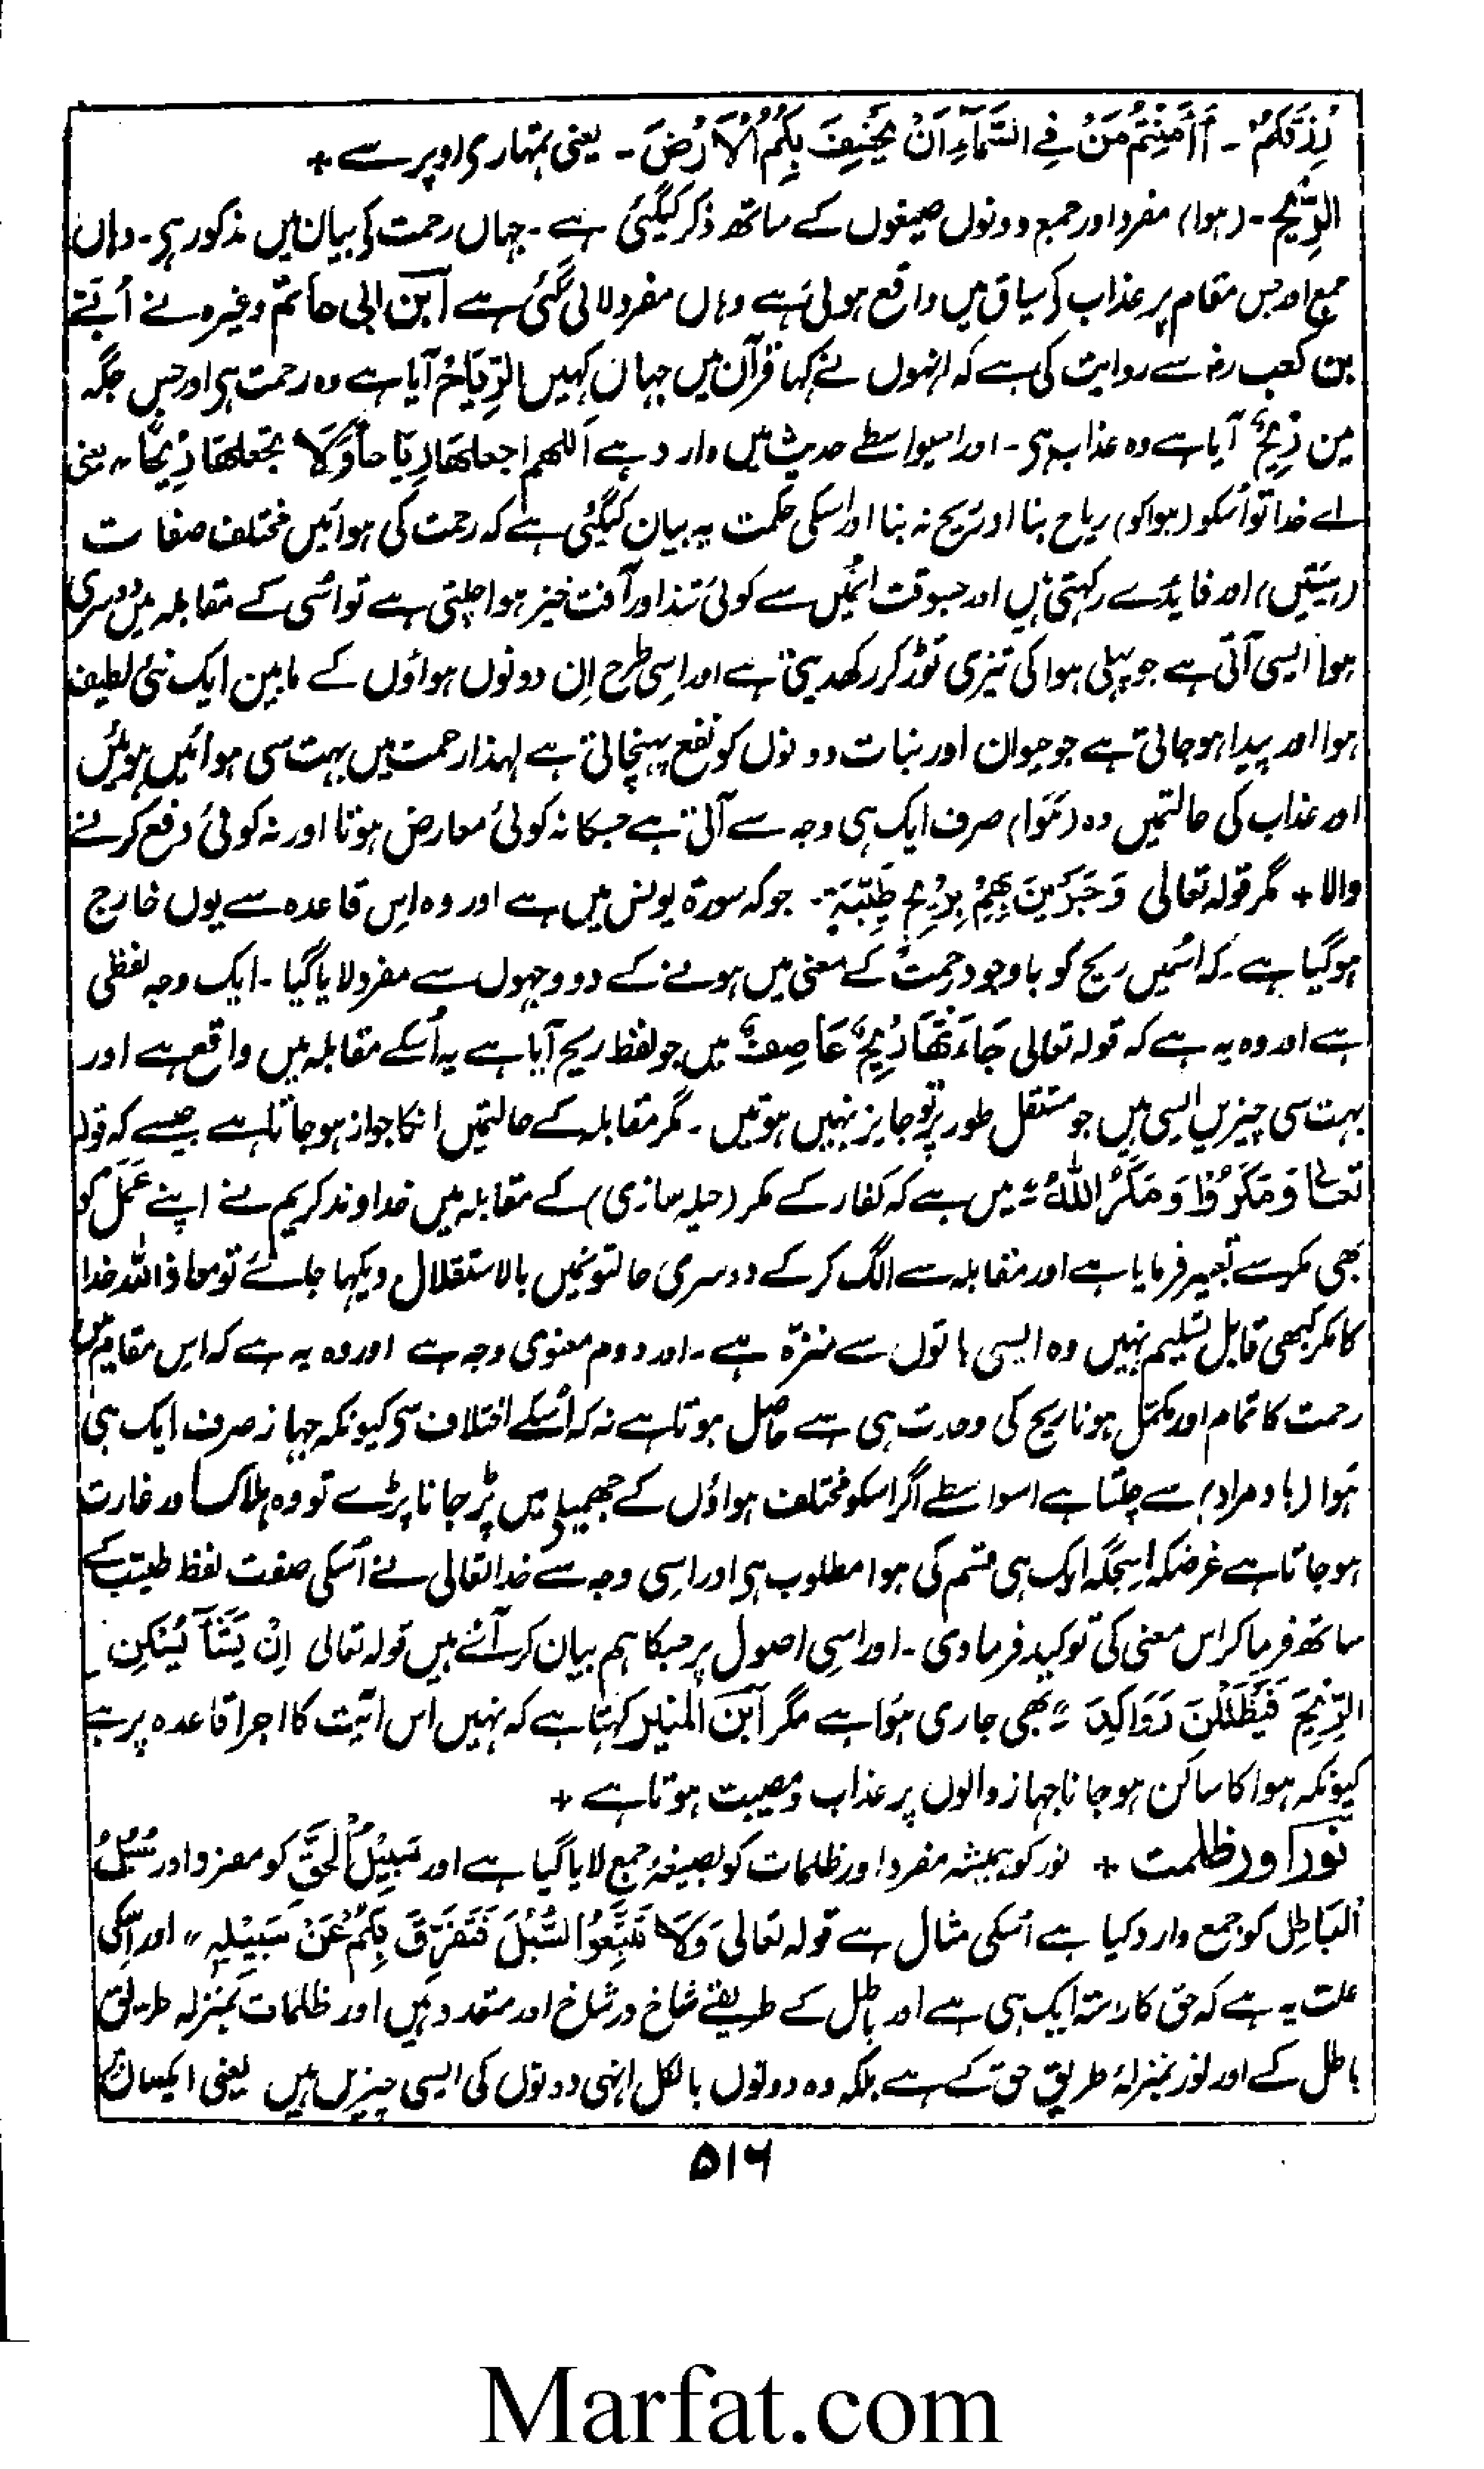 رِزْقُكُمْ ۔ ءَاَمِنْتُمْ مَنْ فِی السَّمَآءِ اَنْ یَّخْسِفَ بِکُمُ الْاَرْضَ ۔ یعنی تمہاری اوپر سے +
الرِّیْح ۔ (ہوا) مفرد اور جمع دونوں صیغوں کے ساتھ ذکر کیگئی ہے ۔ جہاں رحمت کی بیان میں مذکور ہی ۔ وہاں
جمع اور جس مقام پر عذاب کی سیاق میں واقع ہوئی ہے وہاں مفرد لائی گئی ہے ابن ابی حاتم وغیرہ نے اُبَے
بن کعب رضہ سے روایت کی ہے کہ انہوں نے کہا قرآن میں جہاں کہیں الرِّیَاحُ آیا ہے وہ رحمت ہی اور جس جگہ
مین رِیْحٌ آیا ہے وہ عذاب ہی ۔ اور اسیواسطے حدیث میں وارد ہے اَللّٰھم اجعلھَا رِیَاحاً وَّلَا تجعلھَا رِیْحًا ؞ یعنی
اے خدا تو اُسکو (ہوا کو) ریاح بنا اور رِیح نہ بنا اور اسکی حکمت یہ بیان کیگئی ہے کہ رحمت کی ہوائیں مختلف صفات
(ہیئتیں) اور فایدے رکہتی ہیں اور جسوقت انمیں سے کوئی تند اور آفت خیز ہوا چلتی ہے تو اُسی کے مقابلہ میں دوسری
ہوا ایسی آتی ہے جو پہلی ہوا کی تیزی توڑ کر رکھدیتی ہے اور اِسی طرح اِن دونوں ہواؤں کے مابین ایک نئی لطیف
ہوا اور پیدا ہو جاتی ہے جو حیوان اور نبات دونوں کو نفع پہنچاتی ہے لہذا رحمت میں بہت سی ہوائیں ہوئیں
اور عذاب کی حالتمیں وہ (ہَوا) صرف ایک ہی وجہ سے آتی ہے جسکا نہ کوئی معارض ہوتا اور نہ کوئی دفع کرنے
والا + مگر قولہ تعالی وَجَرَیْنَ بِھِمْ بِرِیْحٍ طَیِّبَۃٍ ۔ جو کہ سورۃ یونس میں ہے اور وہ اِس قاعدہ سے یوں خارج
ہو گیا ہے ۔ کہ اسُمیں ریح کو باوجود رحمت کے معنی میں ہونے کے دو وجہوں سے مفرد لایا گیا ۔ ایک وجہ لفظی
ہے اور وہ یہ ہے کہ قولہ تعالی جَاءَتْھَا رِیْحٌ عَاصِفٌ میں جو لفظ ریح آیا ہے یہ اُسکے مقابلہ میں واقع ہے اور
بہت سی چیزیں ایسی ہیں جو مستقل طور پر تو جایز نہیں ہوتیں ۔ مگر مقابلہ کے حالتمیں انکا جواز ہو جاتا ہے جیسے کہ قولہ
تعالےٰ وَمَکَرُوْا وَمَکَرَ اللّٰہُ ؞ میں ہے کہ کفار کے مکر (حیلہ سازی) کے مقابلہ میں خداوند کریم نے اپنے عَمَل کو
بھی مکر سے تعبیر فرمایا ہے اور مقابلہ سے الگ کر کے دوسری حالتونمیں بالاستقلال دیکہا جائے تو معاذ اللہ خدا
کا مکر کبھی قابل تسلیم نہیں وہ ایسی باتوں سے منزہ ہے ۔ اور دوم معنوی وجہ ہے اور وہ یہ ہے کہ اِس مقام میں
رحمت کا تمام اور مکمّل ہونا ریح کی وحدت ہی سے حاصل ہوتا ہے نہ کہ اُسکے اختلاف سی کیونکہ جہاز صرف ایک ہی
ہَوا (باد مراد) سے چلتا ہے اسواسطے اگر اسکو مختلف ہواؤں کے جھمیلے میں پڑ جانا پڑے تو وہ ہلاک اور غارت
ہو جاتا ہے غرضکہ اِسجگہ ایک ہی قسم کی ہوا مطلوب ہی اور اِسی وجہ سے خدا تعالی نے اُسکی صفت لفظ طیّبۃ کے
ساتھ فرما کر اس معنی کی توکید فرما دی ۔ اور اسی اصول پر جسکا ہم بیان کر آئے ہیں قولہ تعالی اِنْ یَّشَأْ یُسْکِنِ
الرِّیْحَ فَیَظْلَلْنَ رَوَاکِدَ ؞ بھی جاری ہُوا ہے مگر ابن المنیر کہتا ہے کہ نہیں اس آیت کا اجرا قاعدہ پر ہے
کیونکہ ہوا کا ساکن ہو جانا جہاز والوں پر عذاب و مصیبت ہوتا ہے +
نُور اور ظلمت + نور کو ہمیشہ مفرد اور ظلمات کو بصیغۂ جمع لایا گیا ہے اور سَبِیْلُ الْحَقِّ کو مفرد اور سُبُلُ
الْبَاطِل کو جمع وارد کیا ہے اُسکی مثال ہے قولہ تعالی وَلَا تَتَّبِعُوا السُّبُلَ فَتَفَرَّقَ بِکُمْ عَنْ سَبِیْلِہٖ ؞ اور اسکی
علت یہ ہے کہ حق کا راستہ ایک ہی ہے اور باطل کے طریقے شاخ در شاخ اور متعدد ہیں اور ظلمات بمنزلہ طریق
باطل کے اور نور بمنزلۂ طریق حق کے ہے بلکہ وہ دونوں بالکل انہی دونوں کی ایسی چیزیں ہیں یعنی ایکساں
۵۱۶
Marfat.com